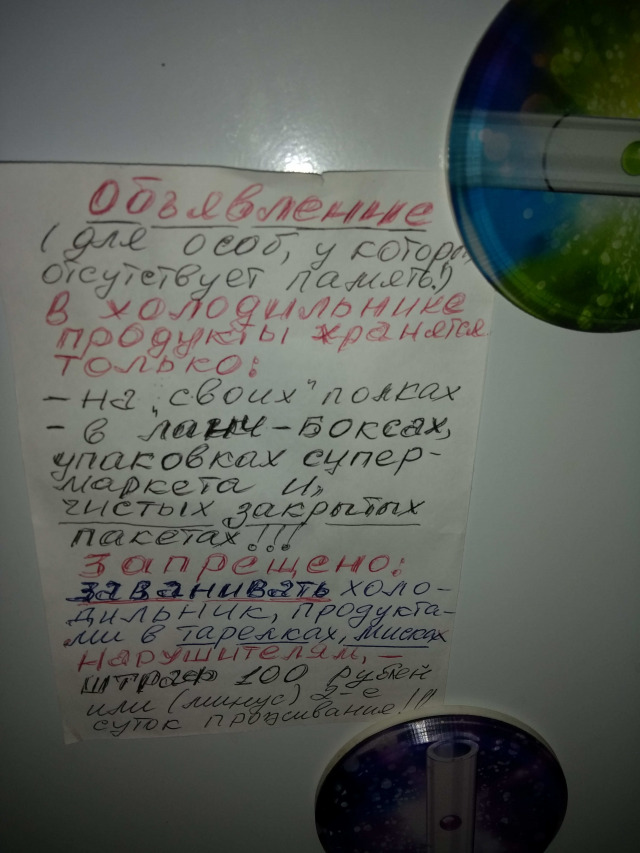 Объявление
(для особ, у котор
отсутствует память!)
В холодильнике
продукты хранятся
только:
- на "своих" полках
- в ланч-боксах,
упаковках супер-
маркета и,
чистых закрытых
пакетах!!!
Запрещено:
заванивать холо-
дильник, продукта-
ми в тарелках, мисках
Нарушителям, -
штраф 100 рублей
или (минус) 2-е
суток проживание!!!